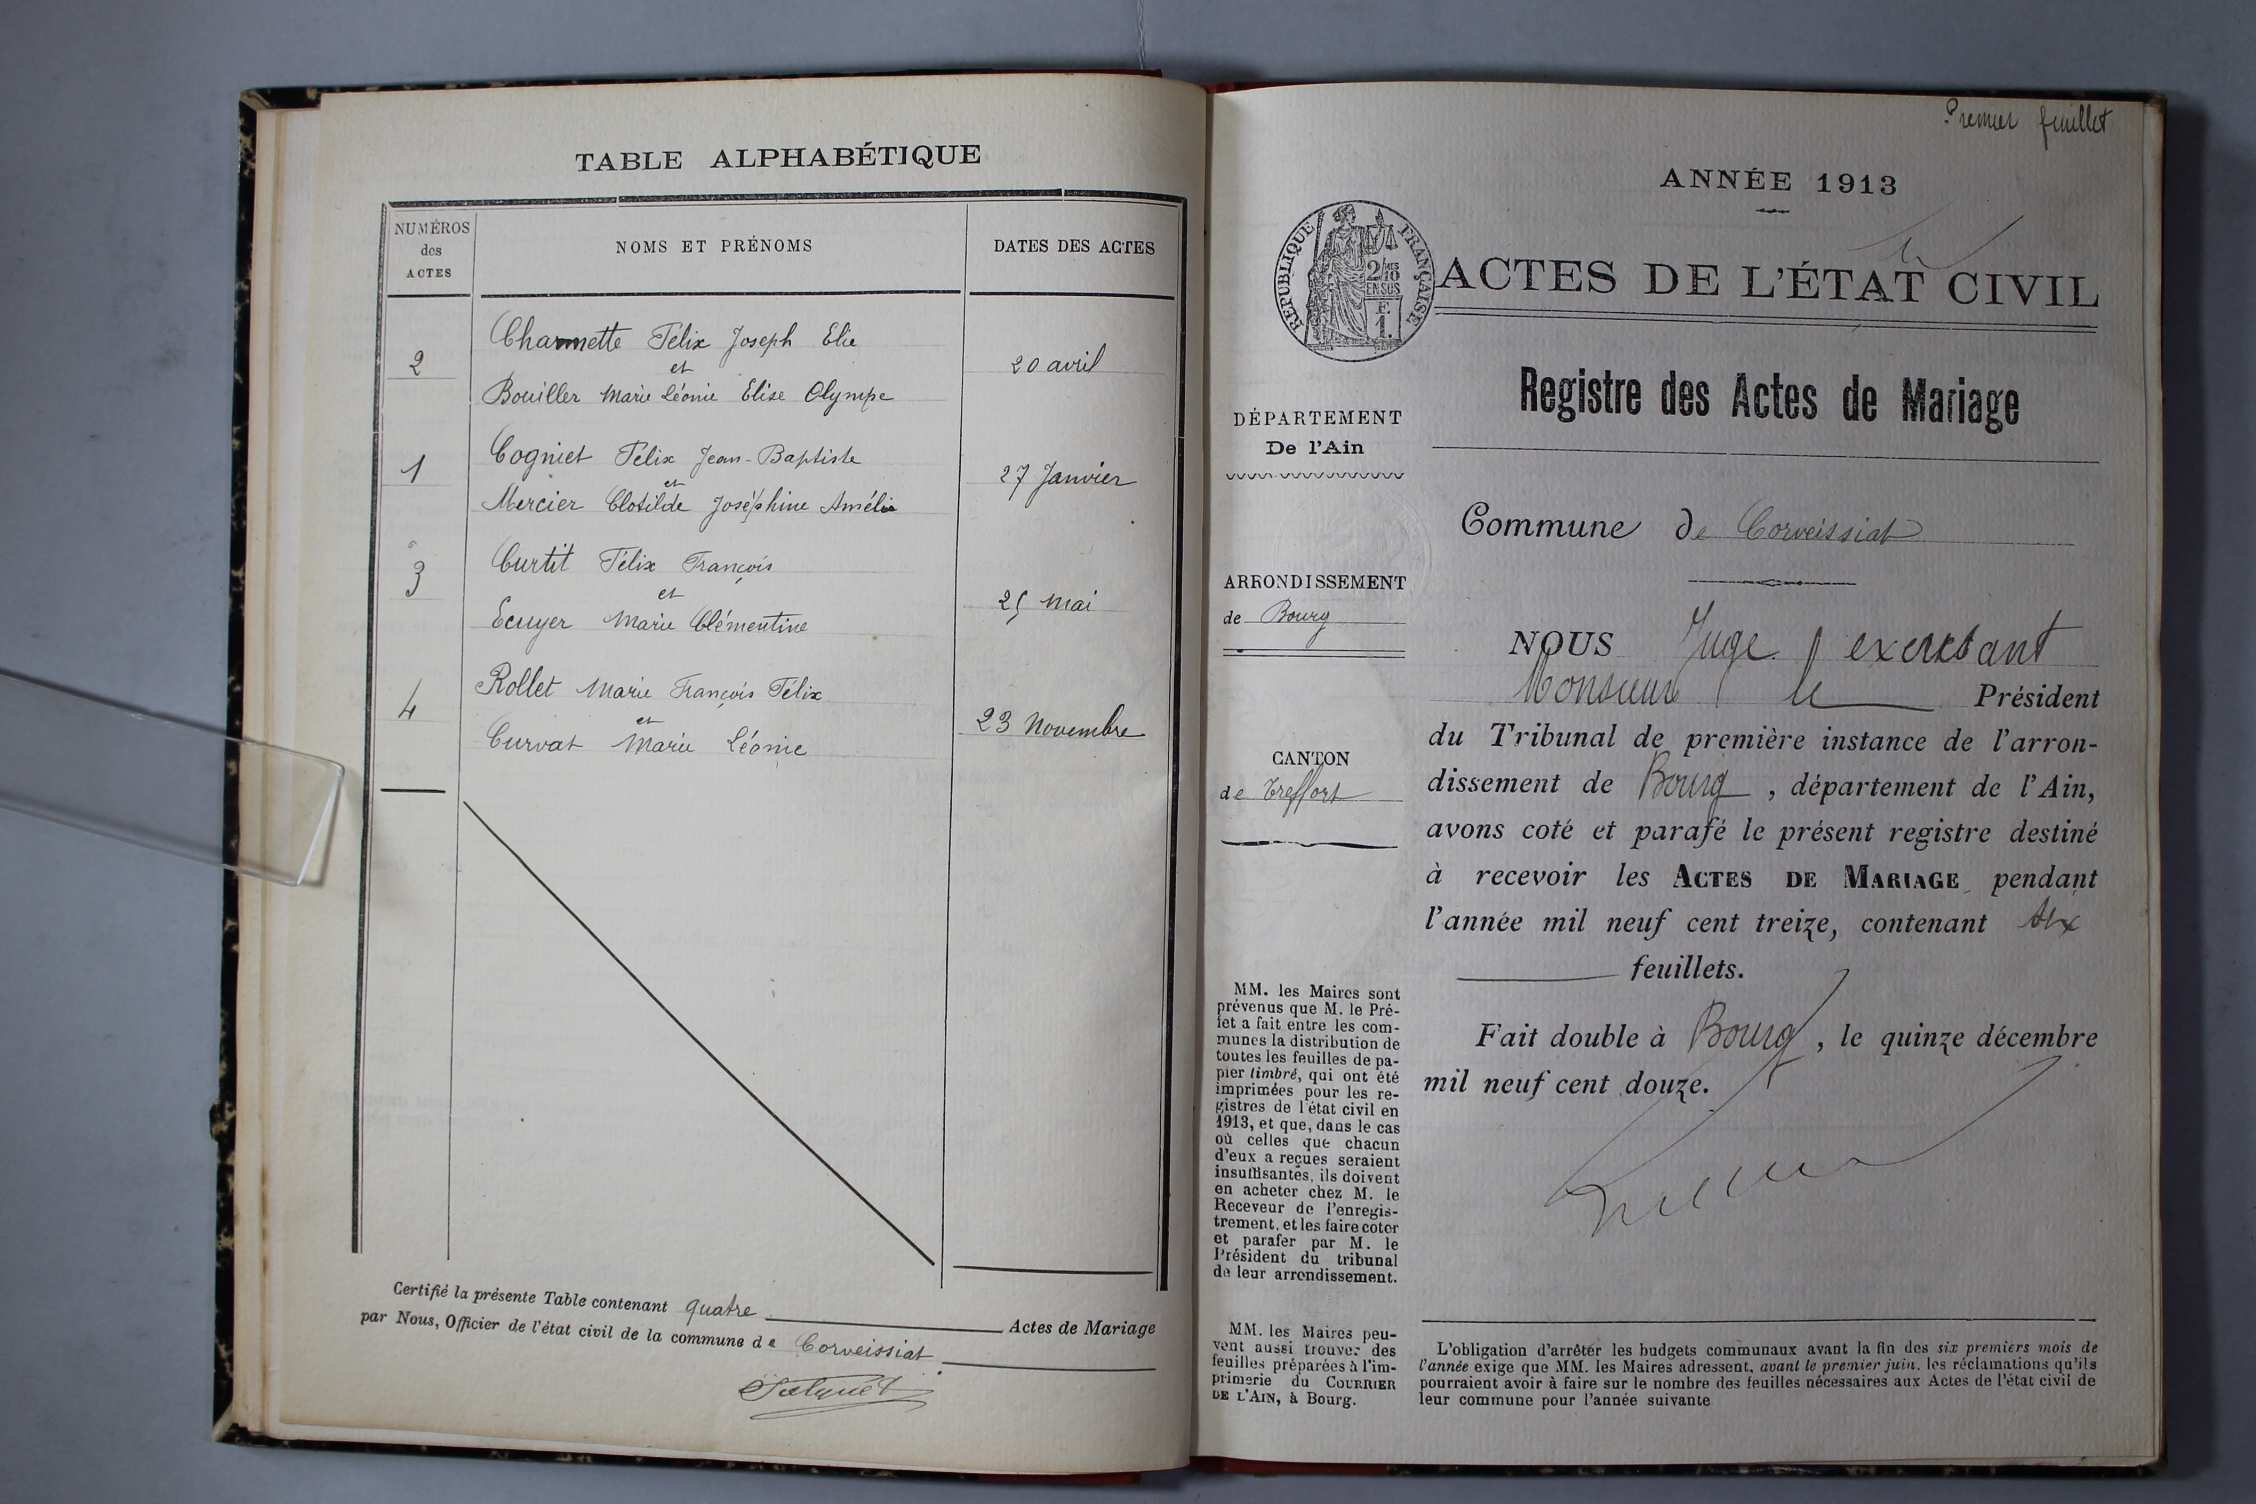 TABLE ALPHABÉTIQUE
NUMÉROS
des
ACTES
NOMS ET PRÉNOMS
DATES DES ACTES
2
Charmette Félix Joseph Elie
et
Bouiller Marie Léonie Elise Olympe
20 avril
1
Cogniet Félix Jean-Baptiste
et
Mercier Clotilde Joséphine Amélie
27 Janvier
3
Curtit Félix François
et
Ecuyer Marie Clémentine
25 mai
4
Rollet Marie François Félix
et
Curvat Marie Léonie
23 novembre
Certifié la présente Table contenant quatre Actes de Mariage
par Nous, Officier de l'état civil de la commune de Corveissiat
Premier feuillet
ANNÉE 1913
REPUBLIQUE FRANÇAISE
2/10 MES
EN SUS
F.
1.
ACTES DE L'ÉTAT CIVIL
Registre des Actes de Mariage
DÉPARTEMENT
De l'Ain
ARRONDISSEMENT
de Bourg
CANTON
de Treffort
MM. les Maires sont
prévenus que M. le Pré-
fet a fait entre les com-
munes la distribution de
toutes les feuilles de pa-
pier timbré, qui ont été
imprimées pour les re-
gistres de l'état civil en
1913, et que, dans le cas
où celles que chacun
d'eux a reçues seraient
insuffisantes, ils doivent
en acheter chez M. le
Receveur de l'enregis-
trement, et les faire coter
et parafer par M. le
Président du tribunal
de leur arrondissement.
MM. les Maires peu-
vent aussi trouver des
feuilles préparées à l'im-
primerie du COURRIER
DE L'AIN, à Bourg.
Commune de Corveissiat
NOUS Juge exerçant
Monsieur le Président
du Tribunal de première instance de l'arron-
dissement de Bourg, département de l'Ain,
avons coté et parafé le présent registre destiné
à recevoir les ACTES DE MARIAGE pendant
l'année mil neuf cent treize, contenant six
feuillets.
Fait double à Bourg, le quinze décembre
mil neuf cent douze.
L'obligation d'arrêter les budgets communaux avant la fin des six premiers mois de
l'année exige que MM. les Maires adressent, avant le premier juin, les réclamations qu'ils
pourraient avoir à faire sur le nombre des feuilles nécessaires aux Actes de l'état civil de
leur commune pour l'année suivante